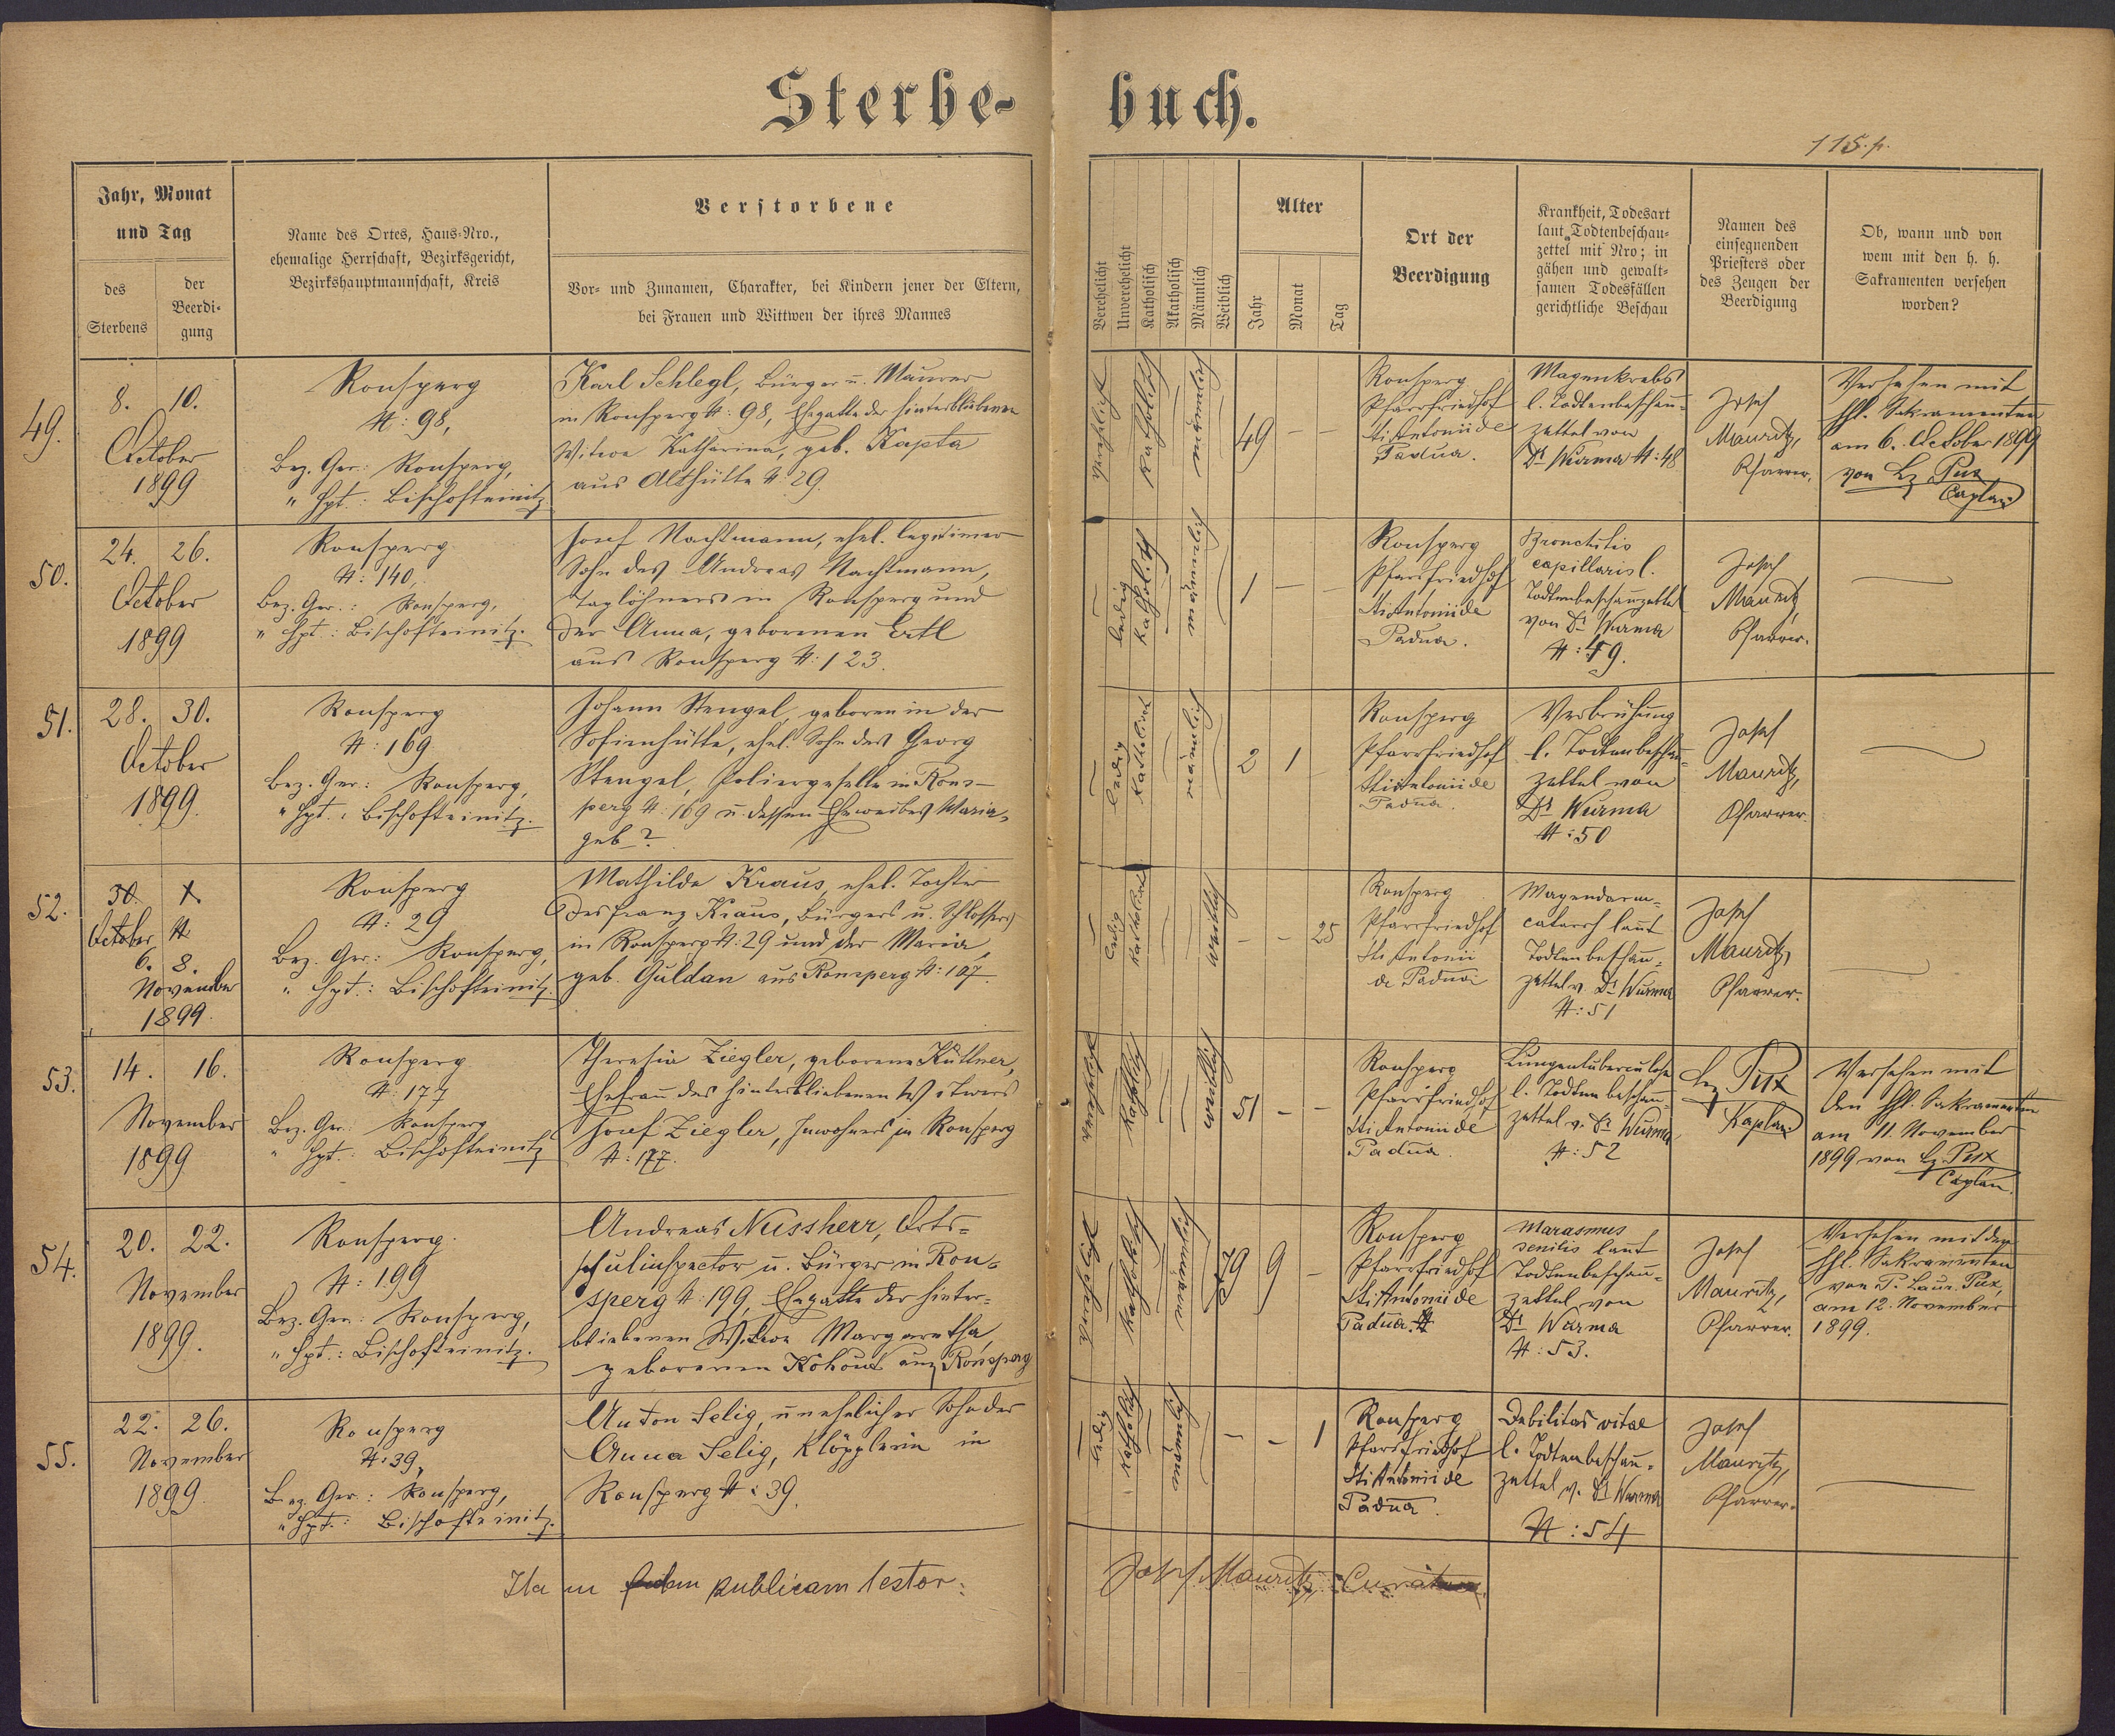 Sterbe-buch.
115. p.
Jahr, Monat
und Tag
des
Sterbens
der
Beerdi-
gung
Name des Ortes, Haus-Nro.,
ehemalige Herrschaft, Bezirksgericht,
Bezirkshauptmannschaft, Kreis
Verstorbene
Vor- und Zunamen, Charakter, bei Kindern jener der Eltern,
bei Frauen und Wittwen der ihres Mannes
Verehelicht
Unverehelicht
Katholisch
Akatholisch
Männlich
Weiblich
Alter
Jahr
Monat
Tag
Ort der
Beerdigung
Krankheit, Todesart
laut Todtenbeschau-
zettel mit Nro; in
gähen und gewalt-
samen Todesfällen
gerichtliche Beschau
Namen des
einsegnenden
Priesters oder
des Zeugen der
Beerdigung
Ob, wann und von
wem mit den h. h.
Sakramenten versehen
worden?
49.
8. 10.
October
1899
Ronsperg
N: 98,
Bez. Ger.: Ronsperg,
" Hpt.: Bischofteinitz
Karl Schlegl, Bürger u. Maurer
in Ronsperg N: 98, Ehegatte der hinterbliebenen
Witwe Katharina, geb. Kapta
aus Althütte N: 29.
verehelicht
katholisch
männlich
49 – –
Ronsperg
Pfarrfriedhof
Sti Antonii de
Padua.
Magenkrebs
l. Todtenbeschau-
zettel von
Dr Wurma N: 48
Josef
Mauritz,
Pfarrer.
Versehen mit
hhl. Sakramenten
am 6. October 1899
von Lz Pux
Caplan
50.
24. 26.
October
1899
Ronsperg
N: 140,
Bez. Ger.: Ronsperg,
" Hpt.: Bischofteinitz.
Josef Nachtmann, ehel. legitimer
Sohn des Andreas Nachtmann,
Taglöhners in Ronsperg und
der Anna, geborenen Ertl
aus Ronsperg N: 123.
ledig
männlich
1 – –
Ronsperg
Pfarrfriedhof
Sti Antonii de
Padua.
Bronchitis
capillaris l.
Todtenbeschauzettel
von Dr Wurma
N: 49.
Josef
Mauritz,
Pfarrer.
51.
28. 30.
October
1899.
Ronsperg
N: 169
Bez. Ger: Ronsperg,
" Hpt.: Bischofteinitz.
Johann Stengel, geboren in der
Sofienhütte, ehel. Sohn des Georg
Stengel, Poliergeselle in Rons-
perg N: 169 u. dessen Eheweibes Maria,
geb ?
ledig
katholisch
männlich
2 1
Ronsperg
Pfarrfriedhof
Sti Antonii de
Padua.
Verbrühung
l. Todtenbeschau-
zettel von
Dr Wurma
N: 50
Josef
Mauritz,
Pfarrer.
52.
30.
October
6. 8.
November
1899.
Ronsperg
N: 29
Bez. Ger.: Ronsperg,
" Hpt.: Bischofteinitz.
Mathilde Kraus, ehel. Tochter
des Franz Kraus, Bürgers u. Schlossers
in Ronsperg N: 29 und der Maria,
geb. Guldan aus Ronsperg N: 107.
ledig
katholisch
weiblich
– – 25
Ronsperg
Pfarrfriedhof
Sti Antonii
de Padua
Magendarm-
catarrh laut
Todtenbeschau-
zettel v. Dr Wurma
N: 51
Josef
Mauritz,
Pfarrer.
53.
14. 16.
November
1899
Ronsperg
N: 177
Bez. Ger: Ronsperg
" Hpt.: Bischofteinitz
Theresia Ziegler, geborene Küttner,
Ehefrau des hinterbliebenen Witwers
Josef Ziegler, Inwohners in Ronsperg
N: 177.
verehelicht
katholisch
weiblich
51 – –
Ronsperg
Pfarrfriedhof
Sti Antonii de
Padua.
Lungentuberculose
l. Todtenbeschau-
zettel v. Dr Wurma
N: 52
Lz Pux
Kaplan
Versehen mit
den hhl. Sakramenten
am 11. November
1899 von Lz. Pux
Caplan.
54.
20. 22.
November
1899.
Ronsperg.
N: 199
Bez. Ger: Ronsperg,
" Hpt.: Bischofteinitz.
Andreas Nussherr, Orts-
schulinspector u. Bürger in Ron-
sperg N: 199, Ehegatte der hinter-
bliebenen Witwe Margaretha,
geborenen Kohout aus Ronsperg
verehelicht
katholisch
männlich
79 9 –
Ronsperg
Pfarrfriedhof
Sti Antonii de
Padua.
Marasmus
senilis laut
Todtenbeschau-
zettel von
Dr Wurma
N: 53.
Josef
Mauritz,
Pfarrer.
Versehen mit den
hhl. Sakramenten
von P. Laur. Pux,
am 12. November
1899.
55.
22. 26.
November
1899.
Ronsperg
N: 39,
Bez. Ger: Ronsperg,
" Hpt.: Bischofteinitz.
Anton Selig, unehelicher Sohn der
Anna Selig, Klöpplerin in
Ronsperg N: 39.
ledig
katholisch
männlich
– – 1
Ronsperg
Pfarrfriedhof
Sti Antonii de
Padua.
Debilitas vitae
l. Todtenbeschau-
zettel v. Dr Wurma
N: 54
Josef
Mauritz,
Pfarrer.
Ita in fidem publicam testor:
Josef Mauritz,